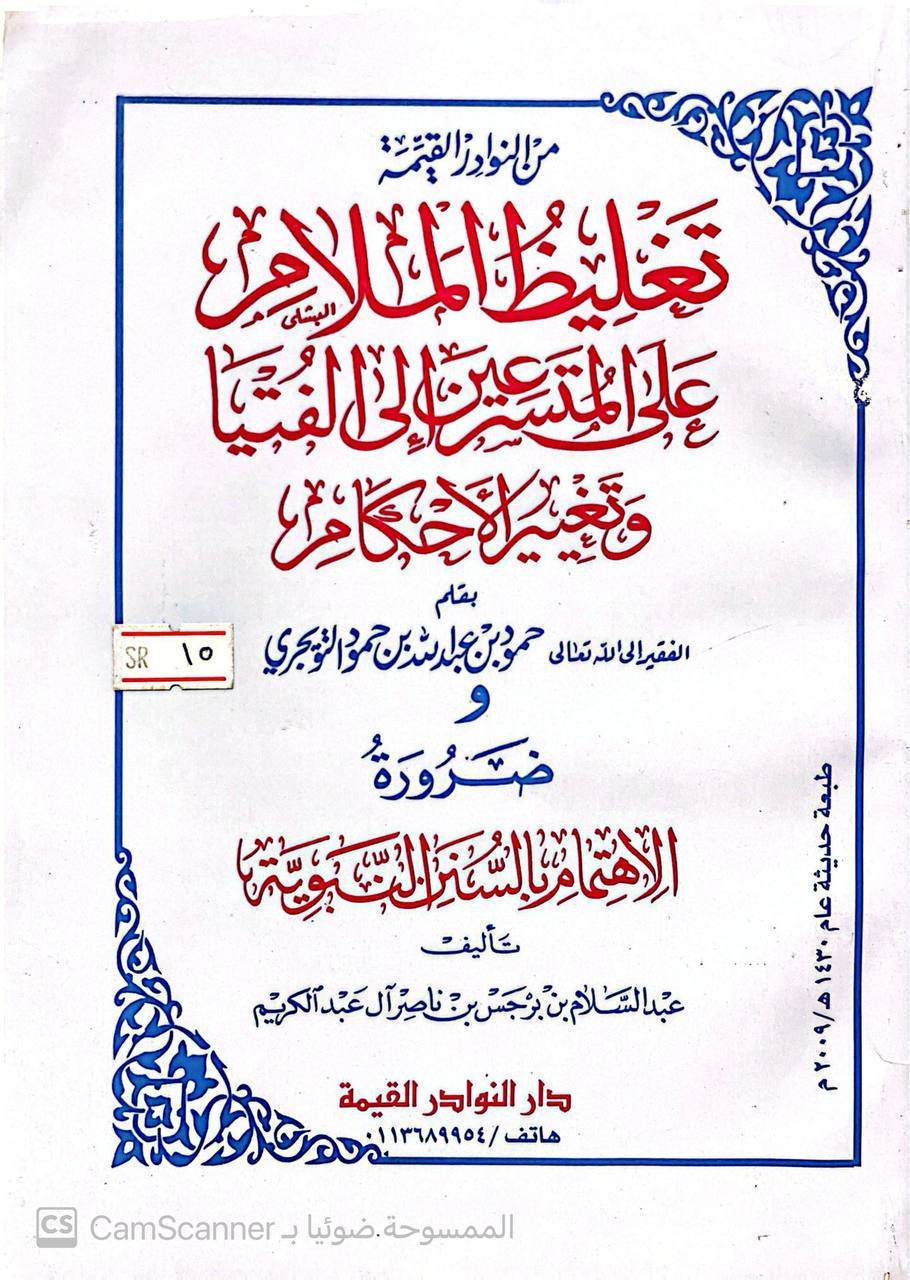 من النوادر القيمة
تغليظ الملام
على المتسرعين إلى الفتيا
وتغيير الأحكام
بقلم
الفقير إلى الله تعالى حمود بن عبد الله بن حمود التويجري
و
ضرورة
الاهتمام بالسنن النبوية
تأليف
عبد السلام بن برجس بن ناصر آل عبد الكريم
دار النوادر القيمة
هاتف /٠١١٣٦٨٩٩٥٤
طبعة حديثة عام ١٤٣٠ هـ/٢٠٠٩ م
SR ١٥
CS CamScanner الممسوحة ضوئيا بـ